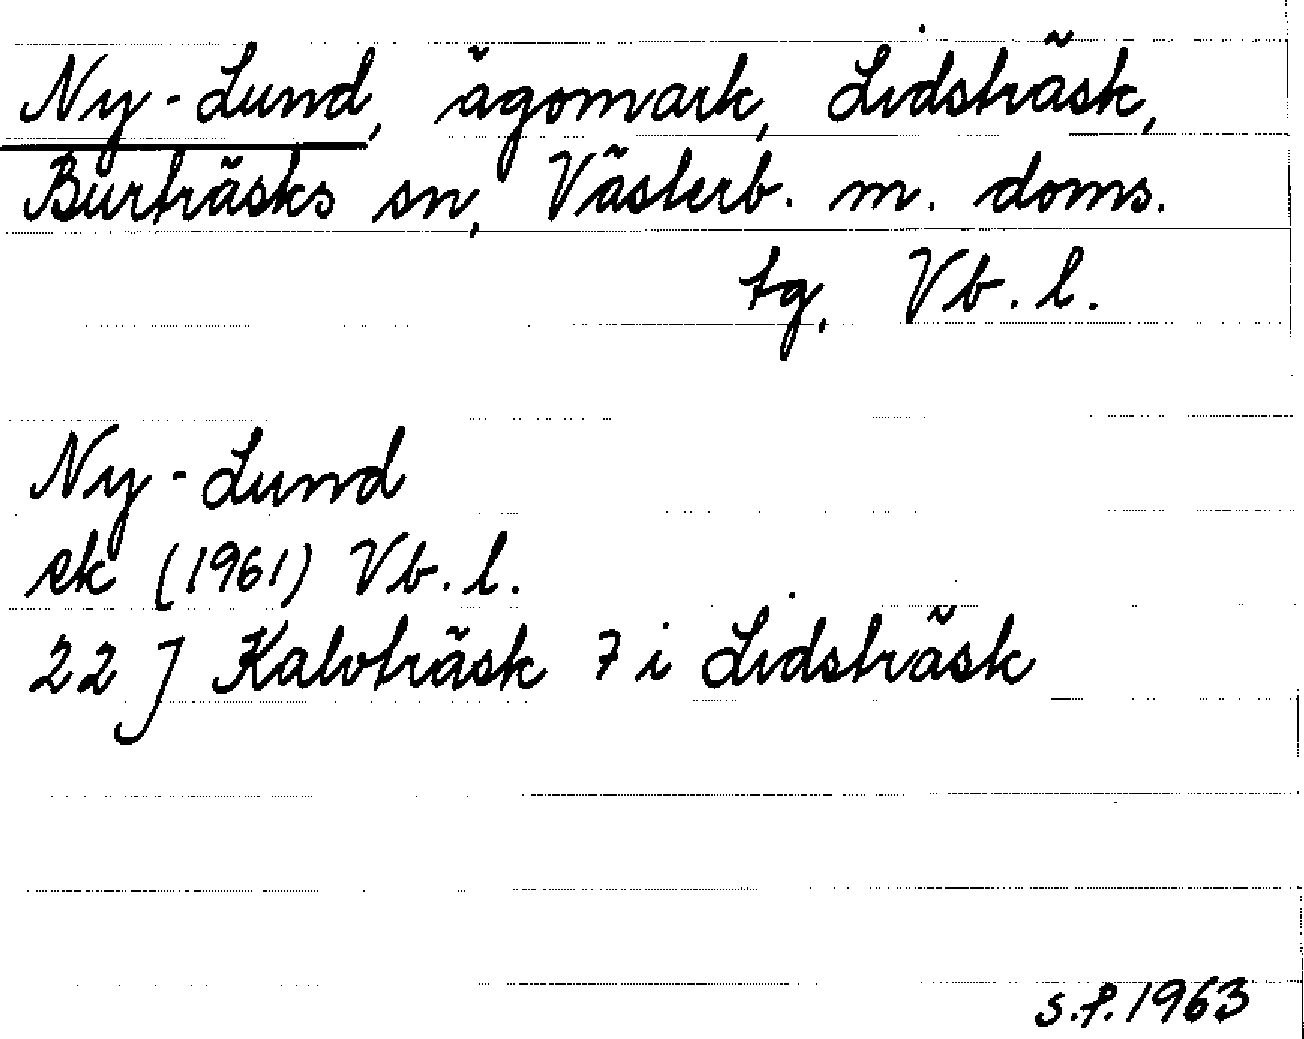 Ny-Lund, ägomark, Lidsträsk,
Burträsks sn, Västerb. m. doms.
tg, Vb. l.
Ny-Lund
ek (1961) Vb. l.
22 J Kalvträsk 7 i Lidsträsk
s.f. 1963